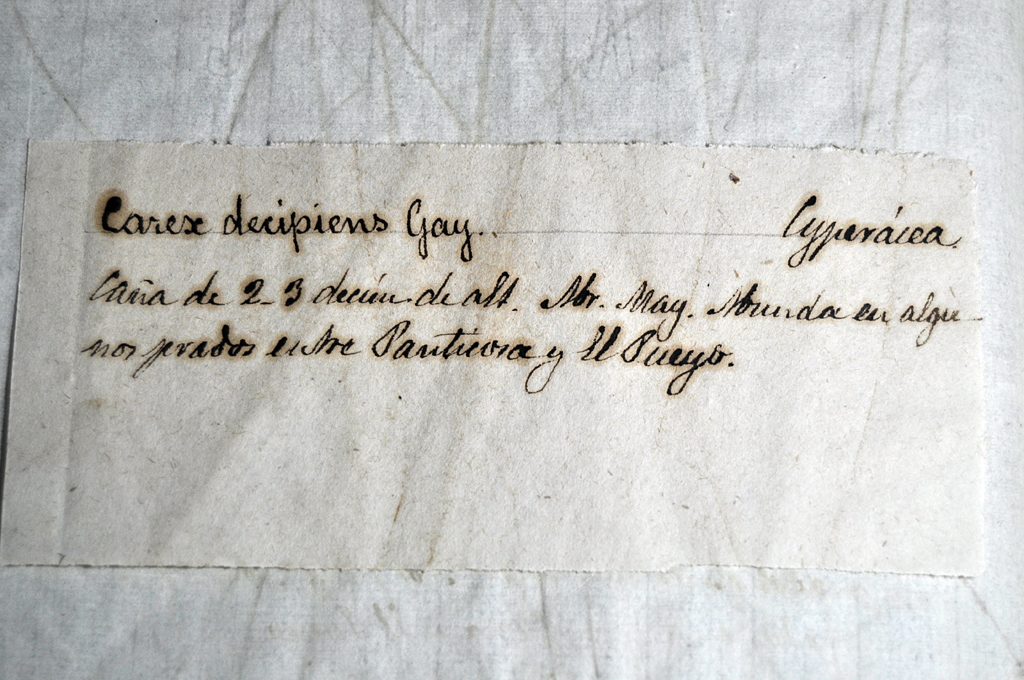 Carex decipiens Gay. Cyperácea.
Caña de 2-3 decím. de alt. Abr. May. Abunda en algu-
nos prados entre Panticosa y El Pueyo.